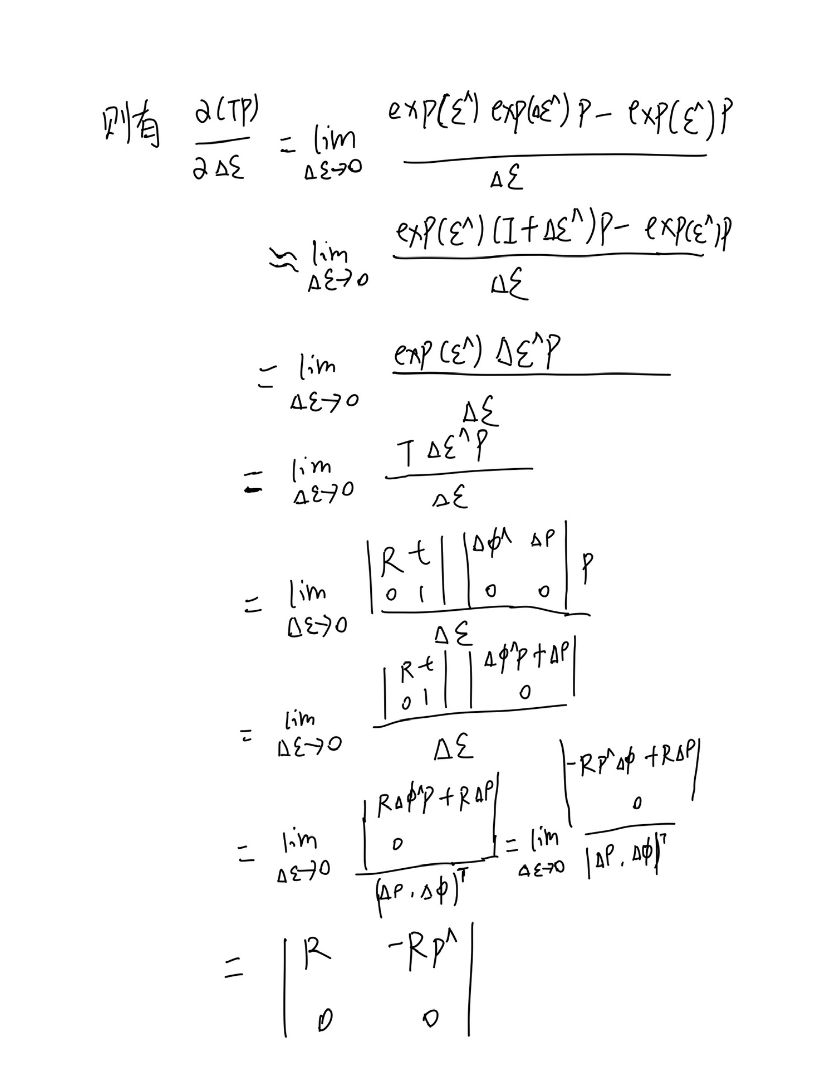 则有 ∂(TP)/∂Δξ = lim Δξ→0 (exp(ξ^) exp(Δξ^) P - exp(ξ^) P) / Δξ
≈ lim Δξ→0 (exp(ξ^) (I + Δξ^) P - exp(ξ^) P) / Δξ
= lim Δξ→0 (exp(ξ^) Δξ^ P) / Δξ
= lim Δξ→0 (T Δξ^ P) / Δξ
= lim Δξ→0 (|R t; 0 1| |Δϕ^ Δρ; 0 0| P) / Δξ
= lim Δξ→0 (|R t; 0 1| |Δϕ^P + Δρ; 0|) / Δξ
= lim Δξ→0 |RΔϕ^P + RΔρ; 0| / (Δρ, Δϕ)^T = lim Δξ→0 |-RP^Δϕ + RΔρ; 0| / |Δρ, Δϕ|^T
= |R -RP^; 0 0|